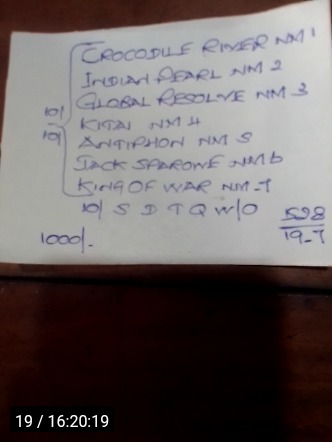 CROCODILE RIVER NM 1
INDIAN PEARL NM 2
10/ GLOBAL RESOLVE NM 3
10/ KITAI NM 4
ANTIPHON NM 5
JACK SPAROWE NM 6
KING OF WAR NM-7
10/ S D T Q W/O
528
1000/-
19-7
19 / 16:20:19